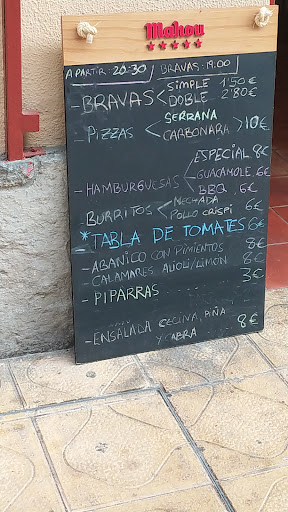 Mahou
★★★★★
A PARTIR: 20:30 / BRAVAS: 19:00
- BRAVAS < SIMPLE 1'50 €
DOBLE 2'80 €
- PIZZAS < SERRANA
CARBONARA > 10 €
- HAMBURGUESAS < ESPECIAL 8 €
GUACAMOLE 6 €
BBQ 6 €
- BURRITOS < MECHADA
POLLO CRISPI 6 €
* TABLA DE TOMATES 6 €
- ABANICO CON PIMIENTOS 8 €
- CALAMARES, ALIOLI/LIMON 8 €
- PIPARRAS 3 €
- ENSALADA CECINA, PIÑA
Y CABRA 8 €